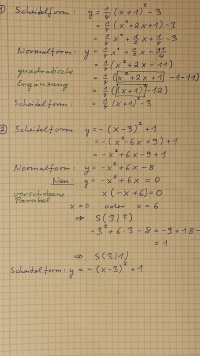 ① Scheitelform: y = 1/4 (x+1)² - 3
= 1/4 (x²+2x+1) - 3
= 1/4 x² + 1/2 x + 1/4 - 3
Normalform: y = 1/4 x² + 1/2 x - 11/4
quadratische = 1/4 (x² + 2x - 11)
Ergänzung = 1/4 (x² + 2x + 1 - 1 - 11)
= 1/4 ((x+1)² - 12)
Scheitelform: = 1/4 (x+1) - 3
② Scheitelform y = - (x-3)² + 1
= - (x² - 6x + 9) + 1
= - x² + 6x - 9 + 1
Normalform: y = - x² + 6x - 8
Neu: y = - x² + 6x = 0
verschobene x(-x+6) = 0
Parabel
x = 0 oder x = 6
⇒ S(3|?)
-3² + 6·3 - 8 = -9 + 18 -
= 1
⇒ S(3|1)
Scheitelform: y = - (x-3)² + 1